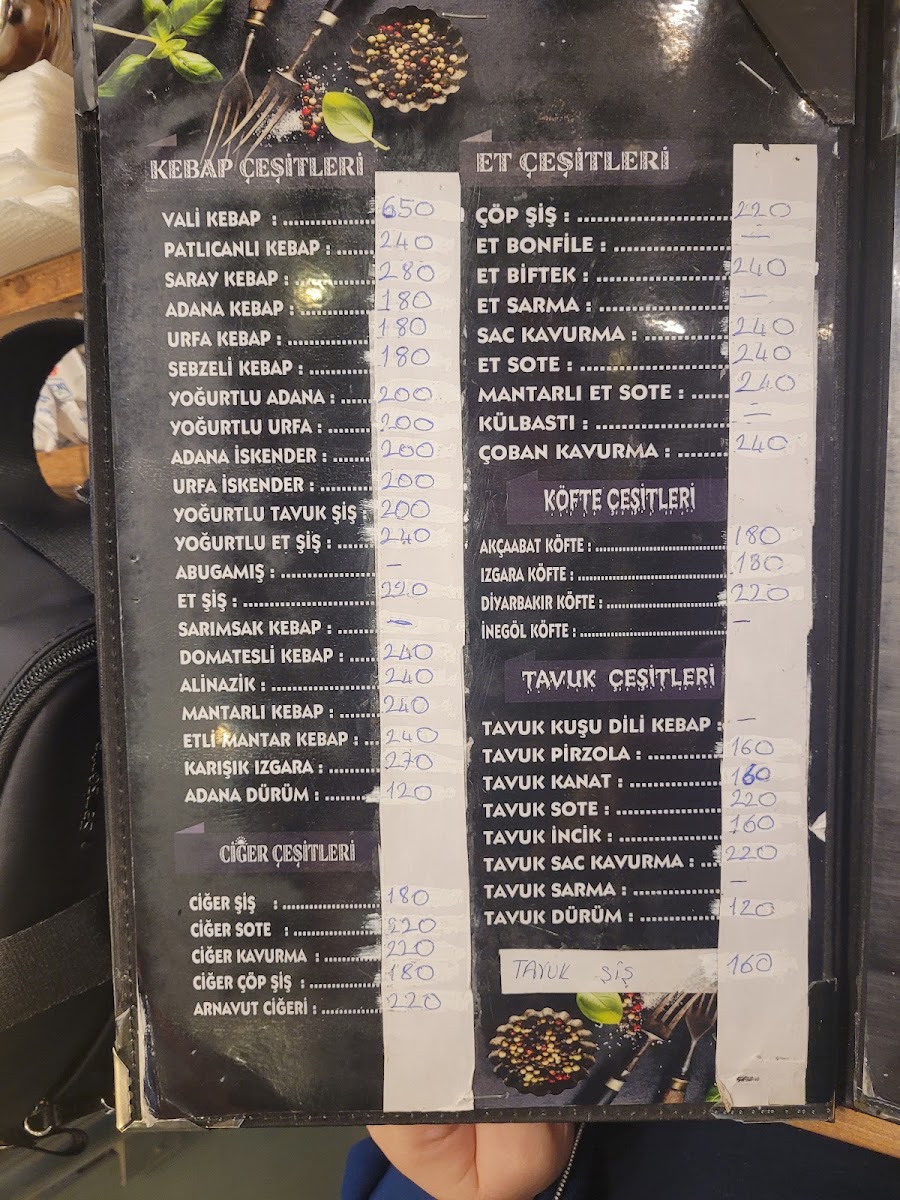 KEBAP ÇEŞİTLERİ
VALİ KEBAP : 650
PATLICANLI KEBAP : 240
SARAY KEBAP : 280
ADANA KEBAP : 180
URFA KEBAP : 180
SEBZELİ KEBAP : 180
YOĞURTLU ADANA : 200
YOĞURTLU URFA : 200
ADANA İSKENDER : 200
URFA İSKENDER : 200
YOĞURTLU TAVUK ŞİŞ 200
YOĞURTLU ET ŞİŞ : 240
ABUGAMIŞ : —
ET ŞİŞ : 220
SARIMSAK KEBAP : —
DOMATESLİ KEBAP : 240
ALİNAZİK : 240
MANTARLI KEBAP : 240
ETLİ MANTAR KEBAP : 240
KARIŞIK IZGARA : 270
ADANA DÜRÜM : 120
CİĞER ÇEŞİTLERİ
CİĞER ŞİŞ : 180
CİĞER SOTE : 220
CİĞER KAVURMA : 220
CİĞER ÇÖP ŞİŞ : 180
ARNAVUT CİĞERİ : 220
ET ÇEŞİTLERİ
ÇÖP ŞİŞ : 220
ET BONFİLE : —
ET BİFTEK : 240
ET SARMA : —
SAC KAVURMA : 240
ET SOTE : 240
MANTARLI ET SOTE : 240
KÜLBASTI : —
ÇOBAN KAVURMA : 240
KÖFTE ÇEŞİTLERİ
AKÇAABAT KÖFTE : 180
IZGARA KÖFTE : 180
DİYARBAKIR KÖFTE : 220
İNEGÖL KÖFTE : —
TAVUK ÇEŞİTLERİ
TAVUK KUŞU DİLİ KEBAP : —
TAVUK PİRZOLA : 160
TAVUK KANAT : 160
TAVUK SOTE : 220
TAVUK İNCİK : 160
TAVUK SAC KAVURMA : 220
TAVUK SARMA : —
TAVUK DÜRÜM : 120
TAVUK ŞİŞ 160